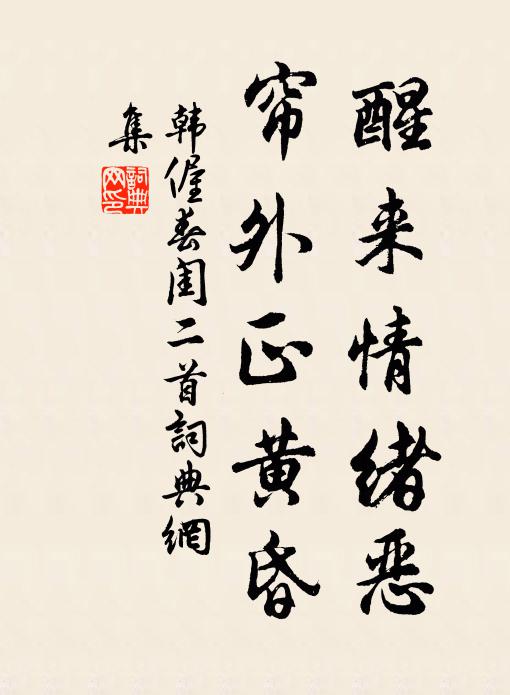 醒来情绪恶
帘外正黄昏
韩偓春闺二首词典網
集
詞典
网印